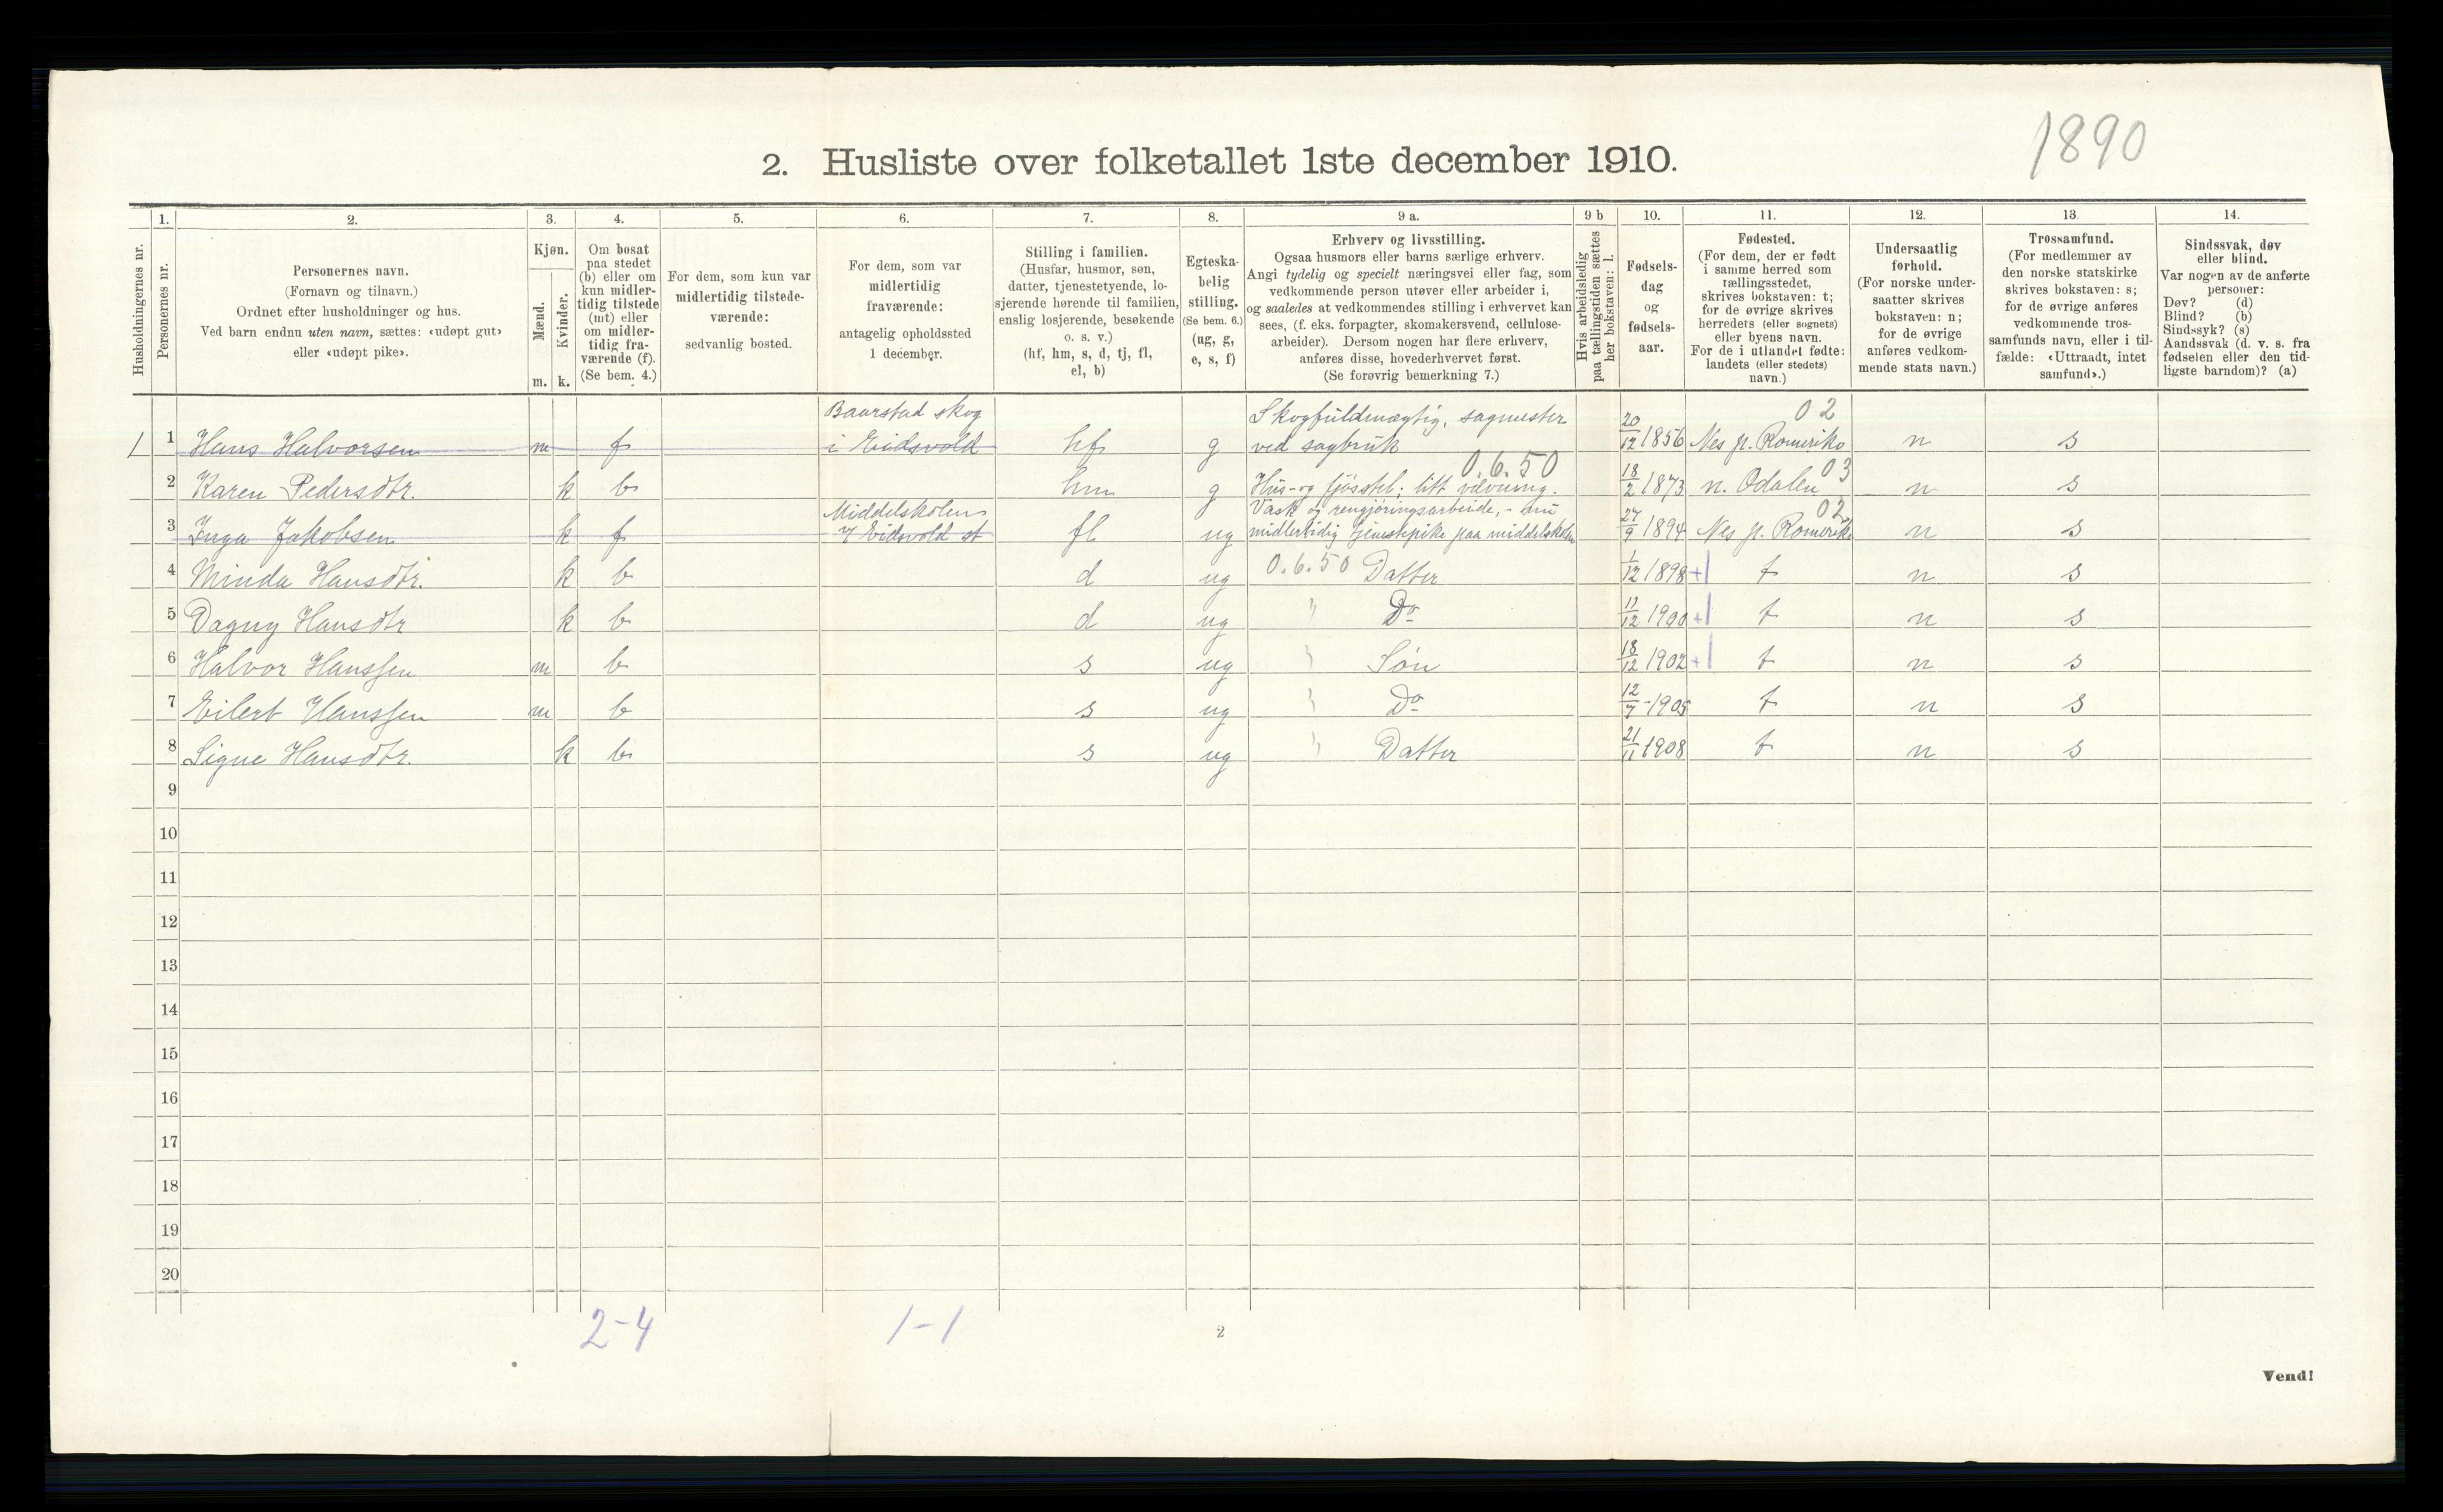 1890
2. Husliste over folketallet 1ste december 1910.
Husholdningernes nr.
1.
Personernes nr.
2.
Personernes navn.
(Fornavn og tilnavn.)
Ordnet efter husholdninger og hus.
Ved barn endnu uten navn, sættes: «udøpt gut»
eller «udøpt pike».
3.
Kjøn.
Mænd.
Kvinder.
m. k.
4.
Om bosat
paa stedet
(b) eller om
kun midler-
tidig tilstede
(mt) eller
om midler-
tidig fra-
værende (f).
(Se bem. 4.)
5.
For dem, som kun var
midlertidig tilstede-
værende:
sedvanlig bosted.
6.
For dem, som var
midlertidig
fraværende:
antagelig opholdssted
1 december.
7.
Stilling i familien.
(Husfar, husmor, søn,
datter, tjenestetyende, lo-
sjerende hørende til familien,
enslig losjerende, besøkende
o. s. v.)
(hf, hm, s, d, tj, fl,
el, b)
8.
Egteska-
belig
stilling.
(Se bem. 6.)
(ug, g,
e, s, f)
9 a.
Erhverv og livsstilling.
Ogsaa husmors eller barns særlige erhverv.
Angi tydelig og specielt næringsvei eller fag, som
vedkommende person utøver eller arbeider i,
og saaledes at vedkommendes stilling i erhvervet kan
sees, (f. eks. forpagter, skomakersvend, cellulose-
arbeider). Dersom nogen har flere erhverv,
anføres disse, hovederhvervet først.
(Se forøvrig bemerkning 7.)
9 b
Hvis arbeidsledig
paa tællingstiden sættes
her bokstaven: l.
10.
Fødsels-
dag
og
fødsels-
aar.
11.
Fødested.
(For dem, der er født
i samme herred som
tællingsstedet,
skrives bokstaven: t;
for de øvrige skrives
herredets (eller sognets)
eller byens navn.
For de i utlandet fødte:
landets (eller stedets)
navn.)
12.
Undersaatlig
forhold.
(For norske under-
saatter skrives
bokstaven: n;
for de øvrige
anføres vedkom-
mende stats navn.)
13.
Trossamfund.
(For medlemmer av
den norske statskirke
skrives bokstaven: s;
for de øvrige anføres
vedkommende tros-
samfunds navn, eller i til-
fælde: «Uttraadt, intet
samfund».)
14.
Sindssvak, døv
eller blind.
Var nogen av de anførte
personer:
Døv? (d)
Blind? (b)
Sindssyk? (s)
Aandssvak (d. v. s. fra
fødselen eller den tid-
ligste barndom)? (a)
Baarstad skog Skogfuldmægtig, sagmester 02
1 1 Hans Halvorsen m f i Eidsvold hf g ved sagbruk 20/12 1856 Nes p. Romerike n s
0.6.50 03
2 Karen Pedersdtr. k b hm g Hus- og fjøsstel; litt vævning. 18/2 1873 n. Odalen n s
Middelskolen Vask og rengjøringsarbeide, - nu 02
3 Inga Jakobsen k f v/ Eidsvold st fl ug midlertidig tjenestepike paa middelskolen 27/9 1894 Nes p. Romerike n s
4 Minda Hansdtr. k b d ug 0.6.50 Datter 1/12 1898 +1 t n s
5 Dagny Hansdtr k b d ug " Do 11/12 1900 +1 t n s
6 Halvor Hanssen m b s ug " Søn 18/12 1902 +1 t n s
7 Eilert Hanssen m b s ug " Do 12/7 1905 t n s
8 Signe Hansdtr. k b s ug " Datter 21/11 1908 t n s
9
10
11
12
13
14
15
16
17
18
19
20
2-4 1-1
2
Vend!